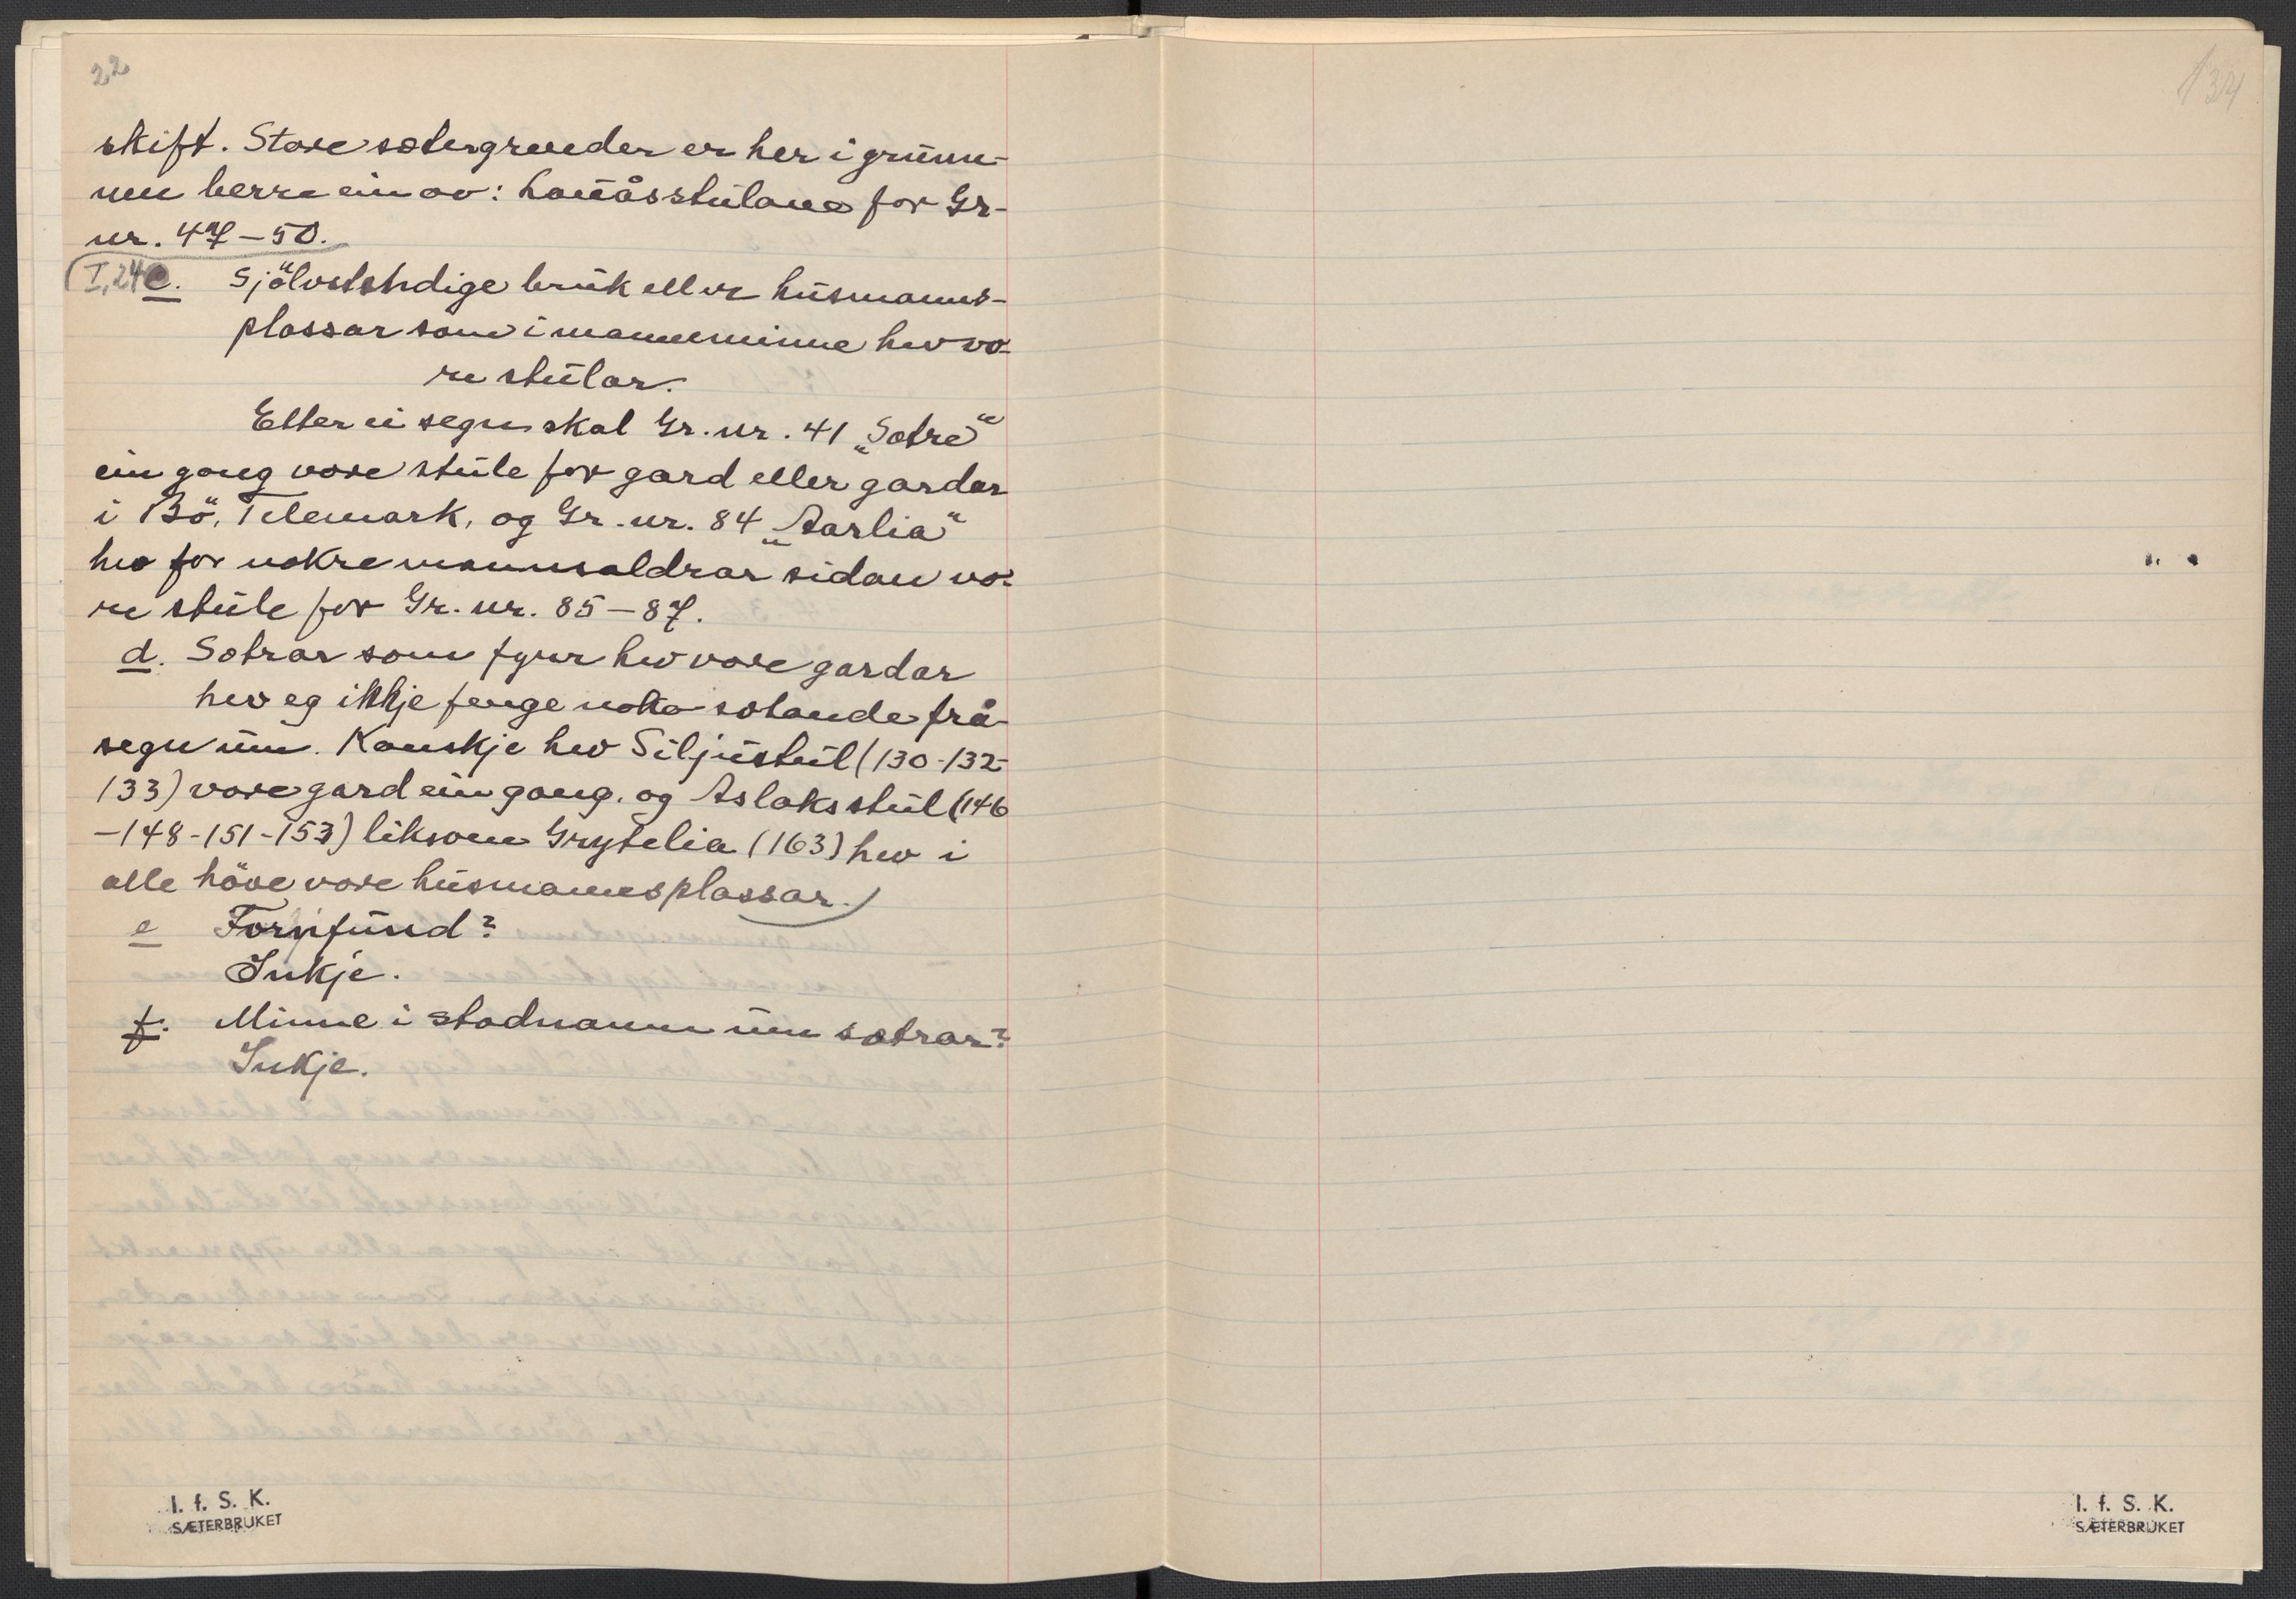 22
skift. Store sætergrender er her i grunn-
nen berre ein av: Lonåsstulane for Gr-
nr. 47-50.
I,24 c. Sjölvstendige bruk eller husmanns-
plassar som i manneminne hev vo-
re stular.
Etter ei segn skal Gr. nr. 41 „Sotre“
ein gong vore stule for gard eller gardar
i Bö, Telemark, og Gr. nr. 84 „Aarlia“
hev for nokre mannsaldrar sidan vo-
re stule for Gr. nr. 85-87.
d. Sætrar som fyrr hev vore gardar
hev eg ikkje fenge noko sotande frå-
segn um. Kanskje hev Siljustul (130-132-
133) vore gard ein gong, og Aslaksstul (146
-148-151-153) liksom Grytelia (163) hev i
alle höve vore husmannsplassar.
e Fornfund?
Inkje.
f. Minne i stadnamn um sætrar?
Inkje.
I. f. S. K.
SÆTERBRUKET
134
I. f. S. K.
SÆTERBRUKET